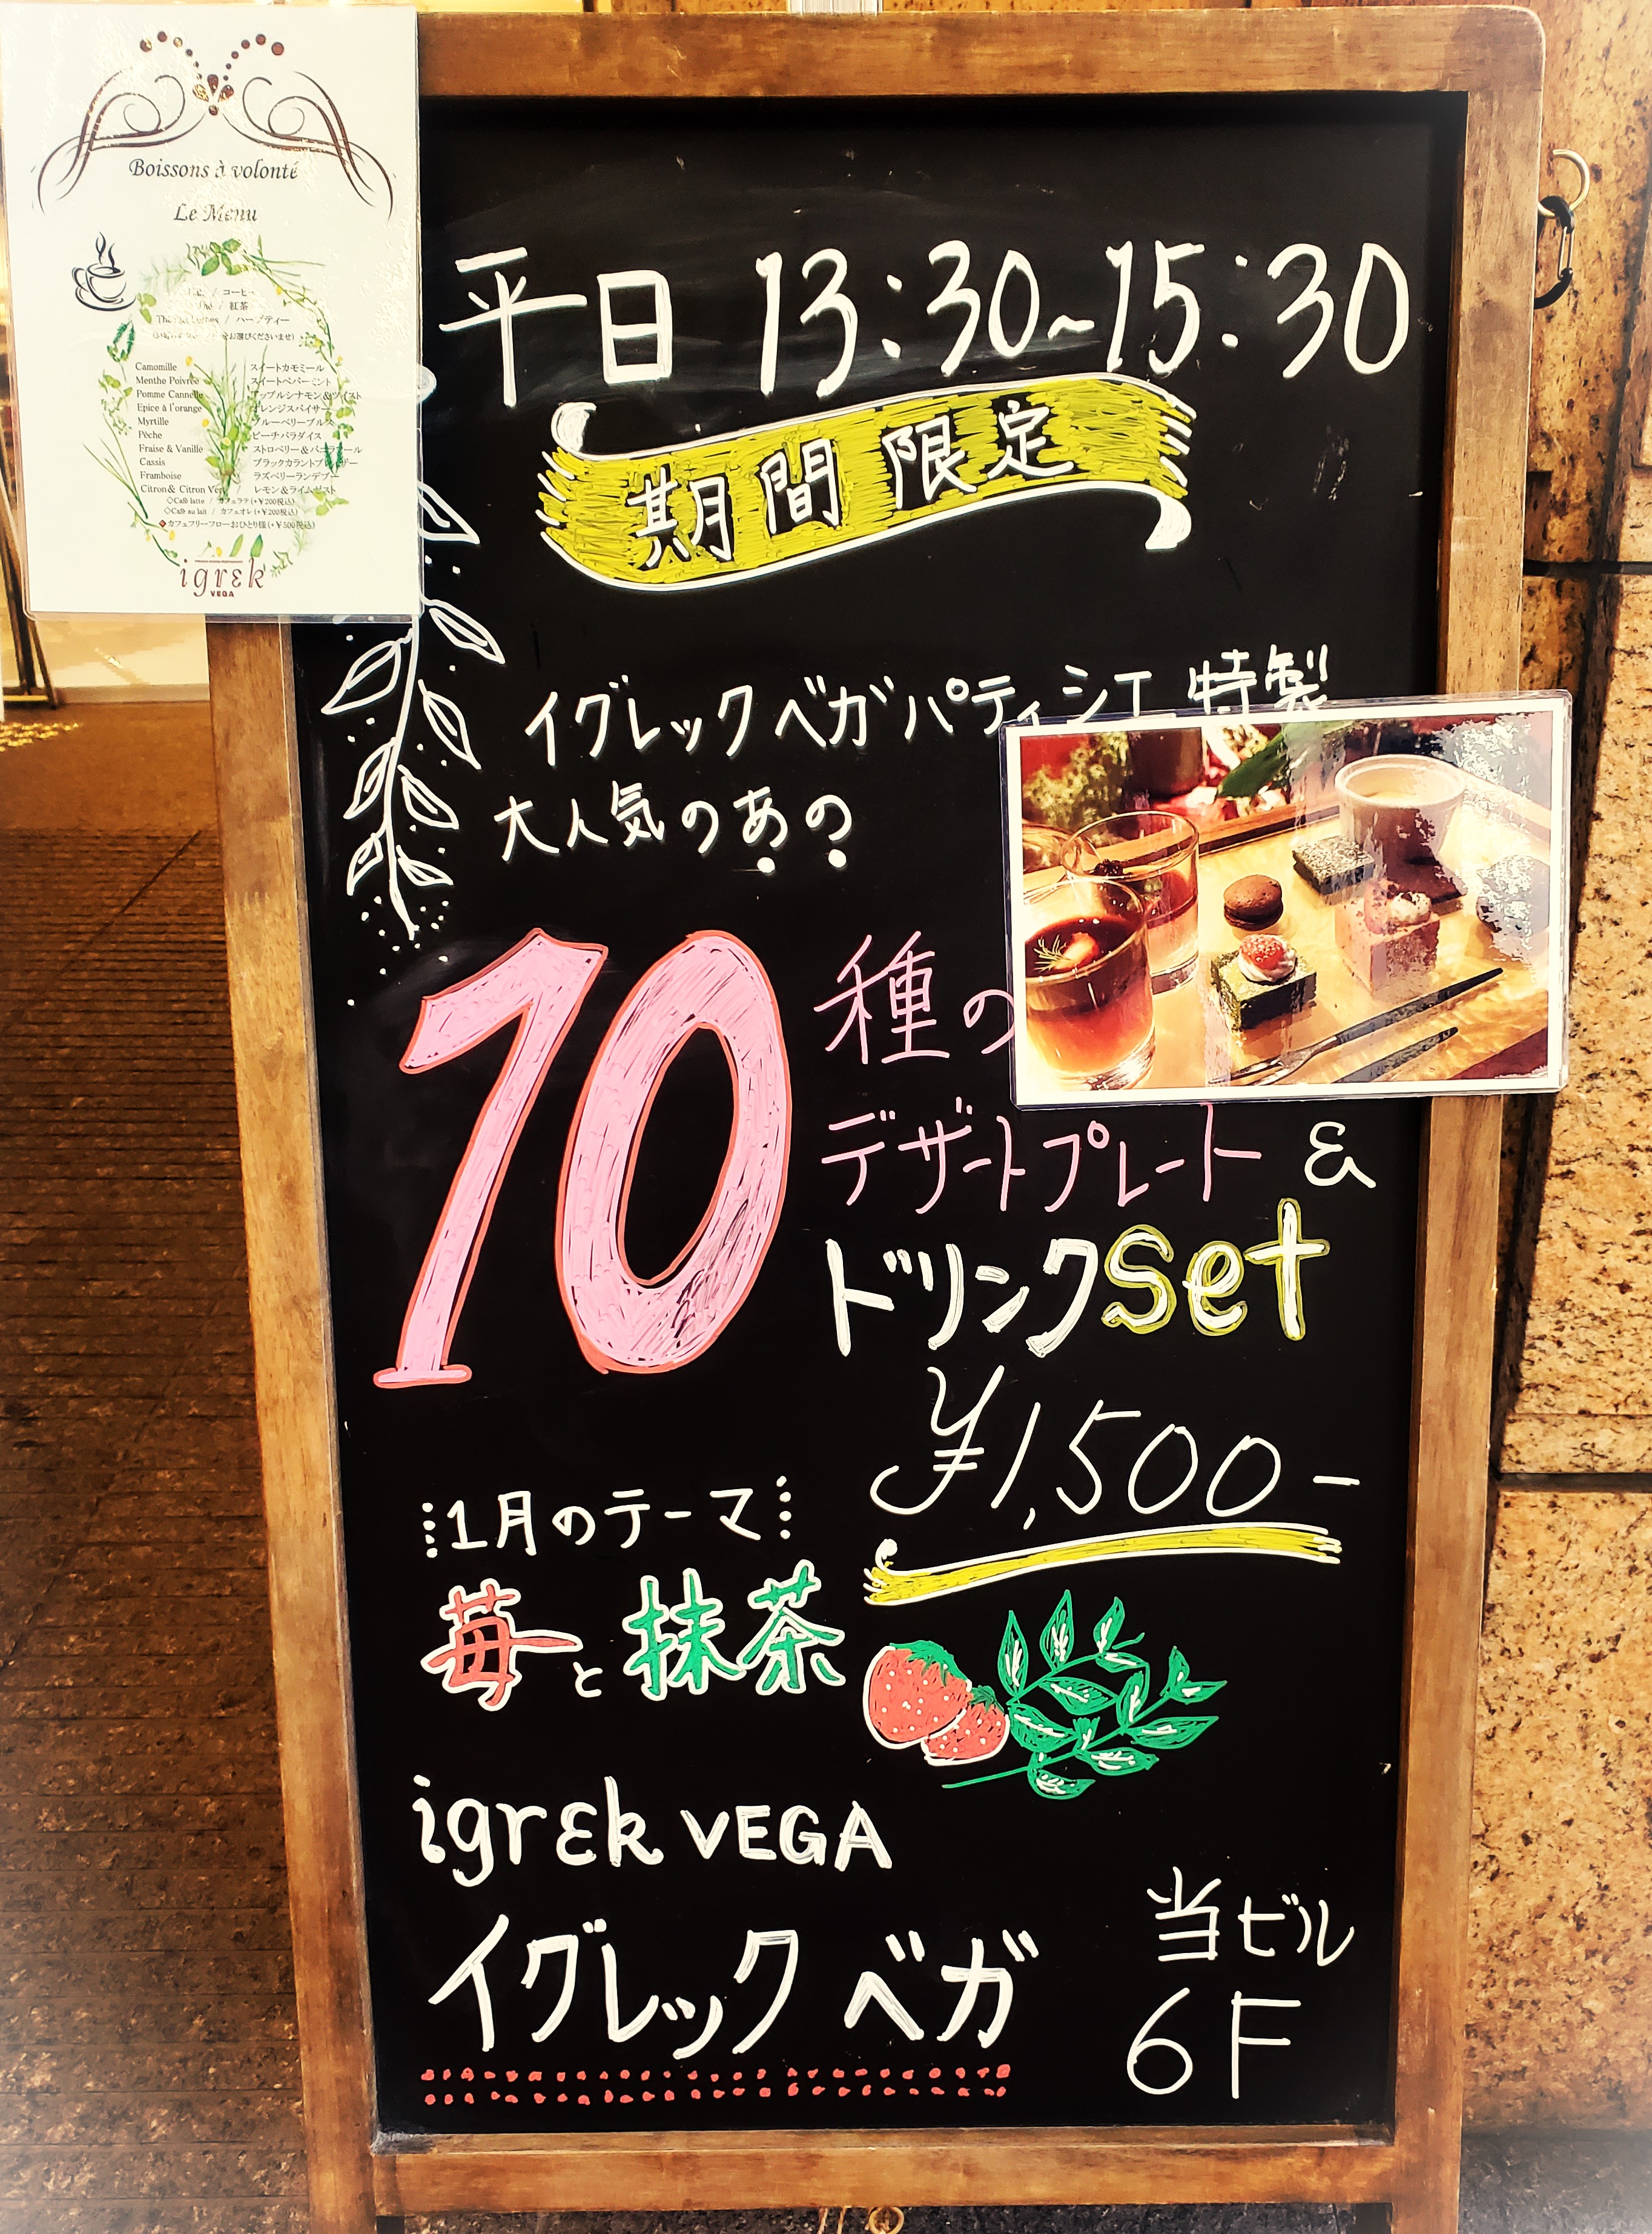 Boissons à volonté
Le Menu
コーヒー
紅茶
ハーブティー
Camomille スイートカモミール
Menthe Poivrée スイートペパーミント
Pomme Cannelle アップルシナモン&ツイスト
Epice à l'orange オレンジスパイサー
Myrtille ブルーベリーブルス
Pêche ピーチパラダイス
Fraise & Vanille
Cassis
Framboise ラズベリーランデブー
Citron & Citron Vert レモン&ライムゼスト
◇Café latte / カフェラテ(+¥200税込)
◇Café au lait / カフェオレ(+¥200税込)
◆カフェフリーフローおひとり様(+¥500税込)
igrεk
VEGA
平日 13:30~15:30
期間限定
イグレックベガパティシエ特製
大人気のあの
10種の
デザートプレート &
ドリンクset
¥1,500-
1月のテーマ
苺と抹茶
igrεk VEGA
イグレック ベガ
当ビル
6F